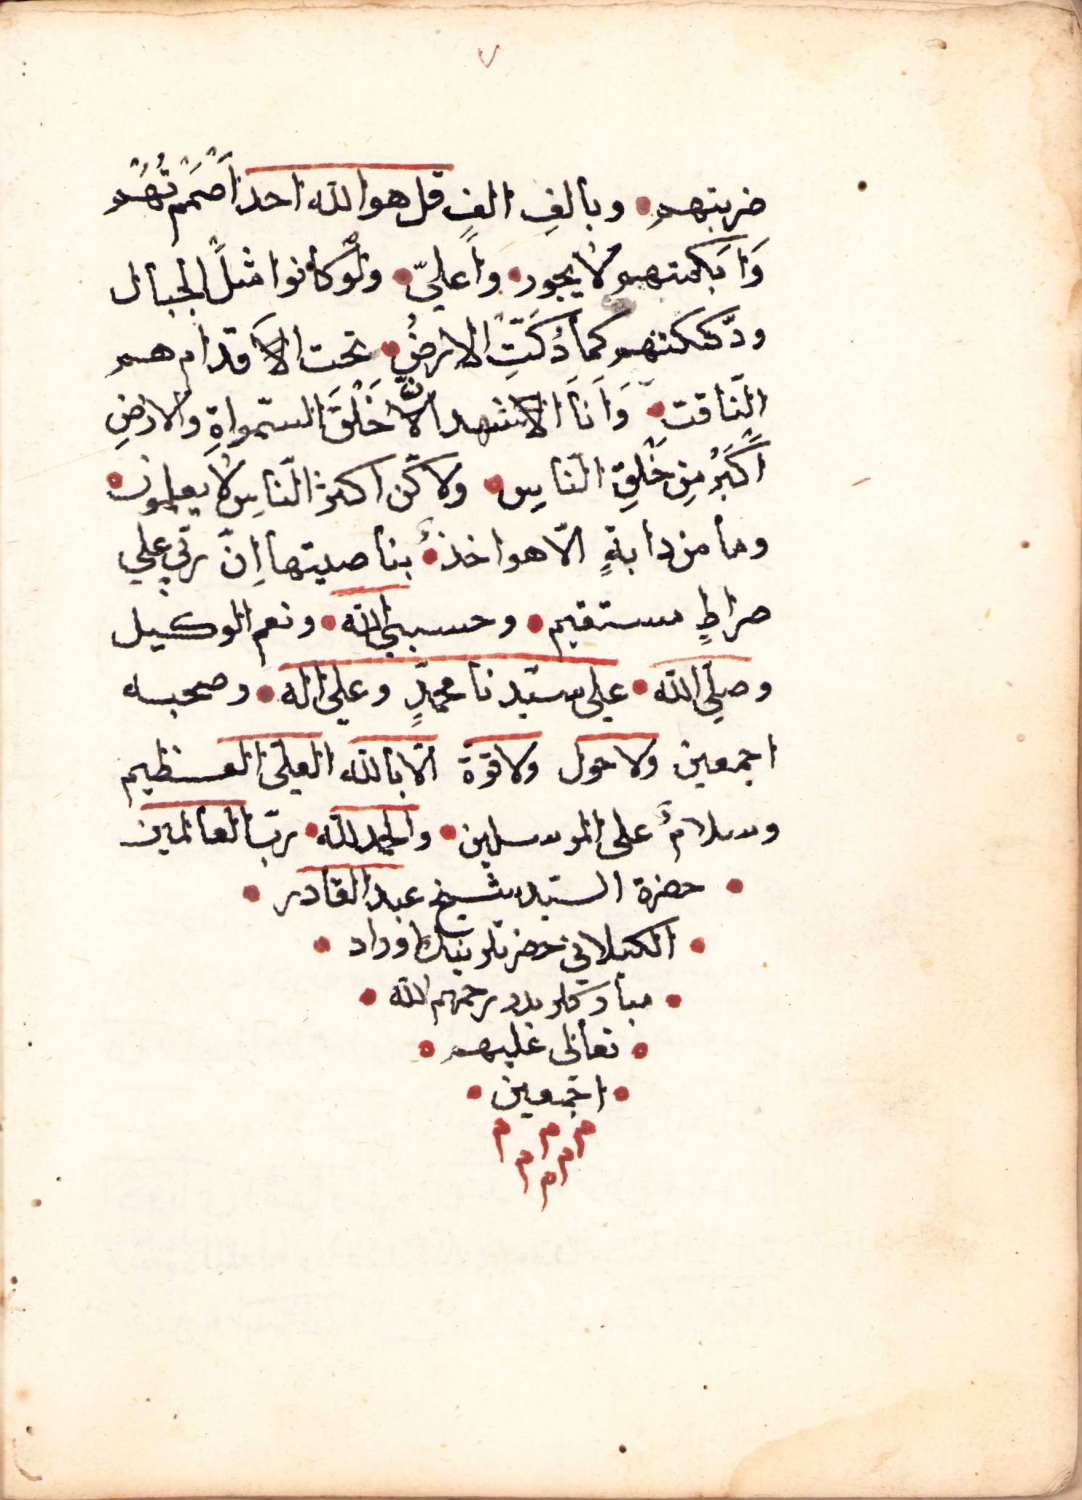 ٧
ضربتهم • وبالفِ الفٍ قل هو الله احد اَصْمَمْتُهُمْ
وَاَبَكمتهم لا يجور • واَعليّ • ولَوكانوا مثلَ الجبال
ودَّكّكتهم كما دُكّتِ الارضُ • تحت الاقدام هم
النّاقت • وَاَنَا الاشهد انّ لاَ خَلْقَ السّمواةِ والارضِ
اَكْبَرُ مِن خَلْقِ النّاس • ولاكّن اكثر النّاسِ لا يعلمون •
وما من دابةٍ الّا هو اخذ • بناصيتها اِنّ ربّي علي
صراطٍ مستقيم • وحسبي الله • ونعم الوكيل
وصلّي الله • علي سيّدنا محمدٍ وعلي اله • وصحبه
اجمعين ولاحول ولا قوّة الّا بالله العليّ العظيم
وسلامٌ على المرسلين • والحمد لله • ربّ العالمين
• حضرة السيّد شيخ عبد القادر •
• الكيلاني حضرتلرينك اوراد •
• مباركلريدر رحمهم الله •
• تعالى عليهم •
• اجمعين •
م م م
م م
م